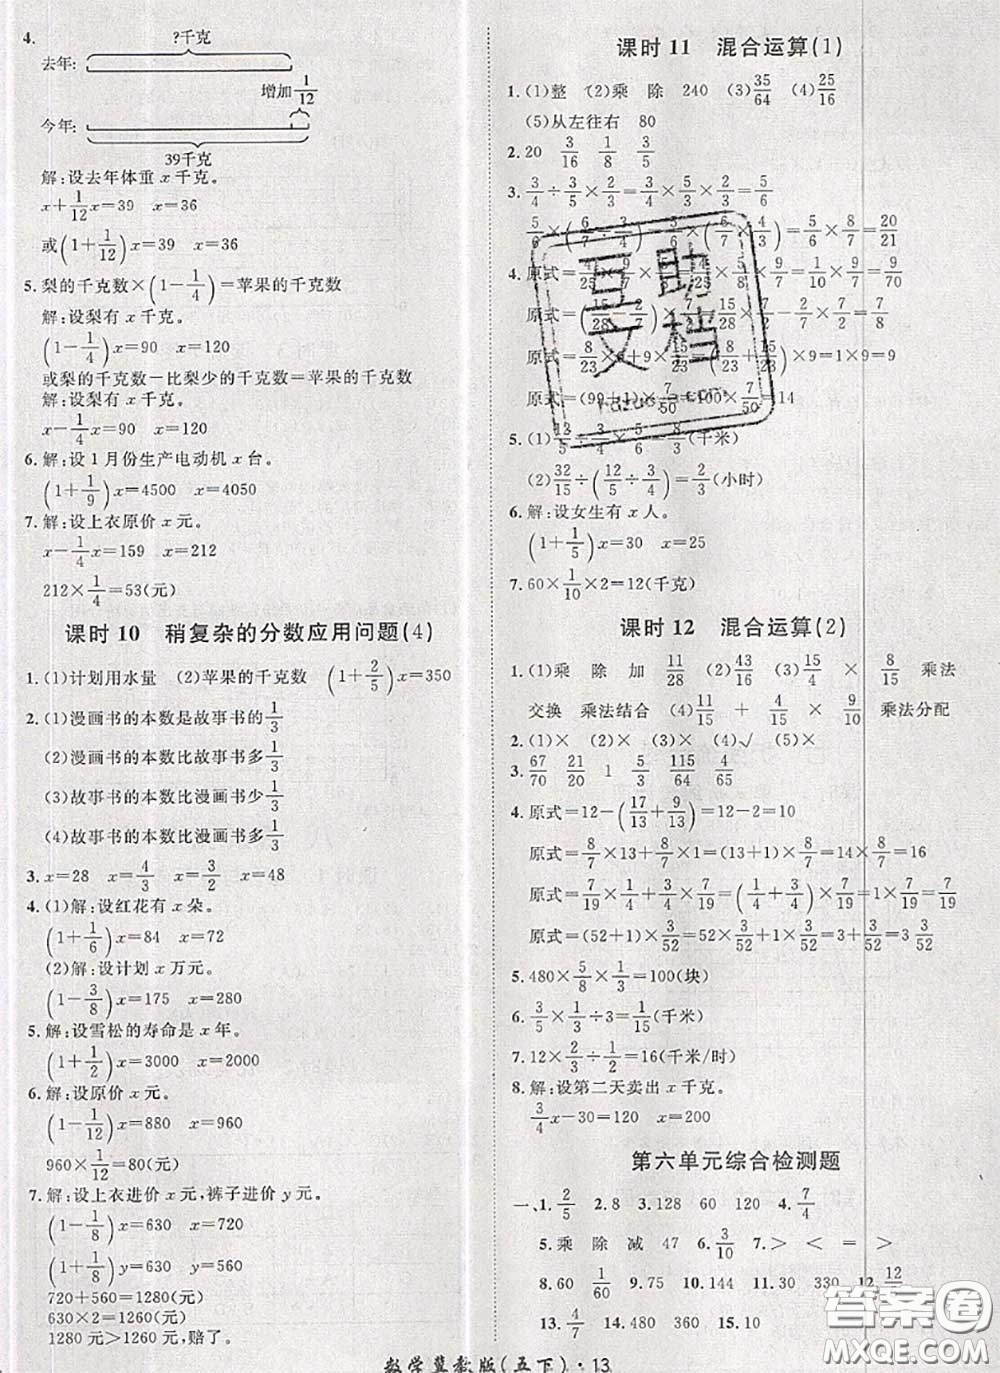 4.
?千克
去年:
增加1/12
今年:
39千克
解:设去年体重 x 千克。
x+1/12x=39 x=36
或(1+1/12)x=39 x=36
5. 梨的千克数×(1-1/4)=苹果的千克数
解:设梨有 x 千克。
(1-1/4)x=90 x=120
或梨的千克数-比梨少的千克数=苹果的千克数
解:设梨有 x 千克。
x-1/4x=90 x=120
6. 解:设 1 月份生产电动机 x 台。
(1+1/9)x=4500 x=4050
7. 解:设上衣原价 x 元。
x-1/4x=159 x=212
212×1/4=53(元)
课时 10 稍复杂的分数应用问题(4)
1. (1)计划用水量 (2)苹果的千克数 (1+2/5)x=350
2. (1)漫画书的本数是故事书的1/3
(2)漫画书的本数比故事书多1/3
(3)故事书的本数比漫画书少1/3
(4)故事书的本数比漫画书多1/3
3. x=28 x=4/3 x=3/2 x=48
4. (1)解:设红花有 x 朵。
(1+1/6)x=84 x=72
(2)解:设计划 x 万元。
(1-3/8)x=175 x=280
5. 解:设雪松的寿命是 x 年。
(1+1/2)x=3000 x=2000
6. 解:设原价 x 元。
(1-1/12)x=880 x=960
960×1/12=80(元)
7. 解:设上衣进价 x 元,裤子进价 y 元。
(1-1/8)x=630 x=720
(1+1/8)y=630 y=560
720+560=1280(元)
630×2=1260(元)
1280 元>1260 元,赔了。
课时 11 混合运算(1)
1. (1)整 (2)乘 除 240 (3)35/64 (4)25/16
(5)从左往右 80
2. 20 3/16 1/8 3/5
3. 3/4÷3/5×2/3=3/4×5/3×2/3=5/6
4. 原式
原式
原式
原式=(99+1)×7/50=100×7/50=14
5. (1)
(千米)
(2)32/15÷(5/12+3/4)=2/3(小时)
6. 解:设女生有 x 人。
(1+1/5)x=30 x=25
7. 60×1/10×2=12(千克)
课时 12 混合运算(2)
1. (1)乘 除 加 11/28 (2)43/16 (3)15/4 × 8/15 乘法
交换 乘法结合 (4)11/15 + 4/15 × 9/10 乘法分配
2. (1)× (2)× (3)× (4)√ (5)×
3. 67/70 21/20 1 5/3 115/64 4/65
4. 原式=12-(17/13+9/13)=12-2=10
原式=8/7×13+8/7×1=(13+1)×8/7=14×8/7=16
原式=7/19×1/4+3/4×7/19=(1/4+3/4)×7/19=1×7/19=7/19
原式=(52+1)×3/52=52×3/52+1×3/52=3+3/52=3 3/52
5. 480×5/8×1/3=100(块)
6. 3/5×1/3÷3=1/15(千米)
7. 12×2/3÷1/2=16(千米/时)
8. 解:设第二天卖出 x 千克。
3/4x-30=120 x=200
第六单元综合检测题
一、1. 2/5 2. 8 3. 128 60 120 4. 7/4
5. 乘 除 减 47 6. 3/10 7. > < = >
8. 60 1/60 9. 75 10. 144 11. 30 330
13. 4/7 14. 480 360 15. 10
数学冀教版(五下)·13
互助
文档
答案圈